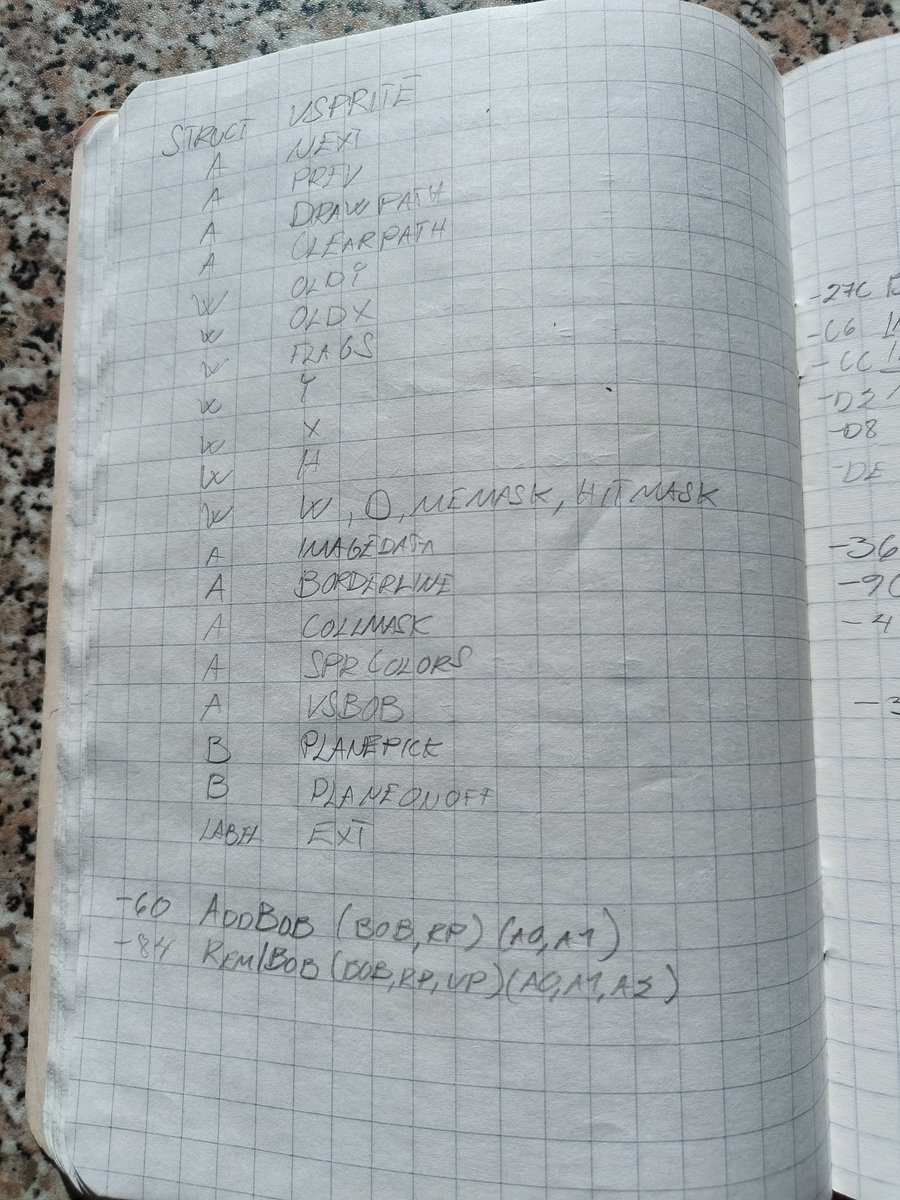 STRUCT VSPRITE
A NEXT
A PREV
A DRAWPATH
A CLEARPATH
W OLDY
W OLDX
W FLAGS
W Y
W X
W H
W W, D, MEMASK, HITMASK
A IMAGEDATA
A BORDERLINE
A COLLMASK
A SPRCOLORS
A VSBOB
B PLANEPICK
B PLANEONOFF
LABEL EXT
-60 ADDBOB (BOB, RP) (A0, A1)
-84 REMIBOB (BOB, RP, VP) (A0, A1, A2)
-27C
-C6
-CC
-D2
-D8
-DE
-36
-90
-4
-3